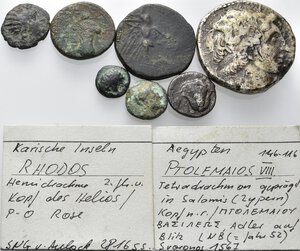 Karische Inseln
RHODOS
Hemidrachme 2. Jh. v.
Kopf des Helios /
P-O Rose
SNG v. Aulock 2816 ss.
Aegypten 146-116
PTOLEMAIOS VIII.
Tetradrachmon geprägt
in Salamis (Zypern)
Kopf n. r. / ΠΤΟΛΕΜΑΙΟΥ
ΒΑΣΙΛΕΩΣ Adler auf
Blitz
Svoronos 1562